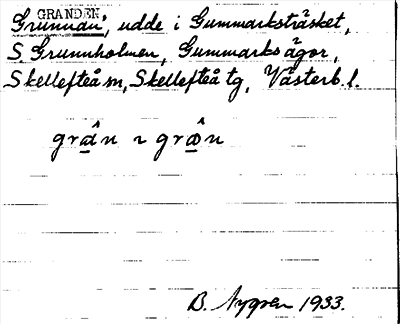 GRANDEN
Grunnan, udde i Gummarksträsket,
S. Grunnholmen, Gummarks ägor,
Skellefteå sn, Skellefteå tg, Västerb. l.
B. Nygren 1933.